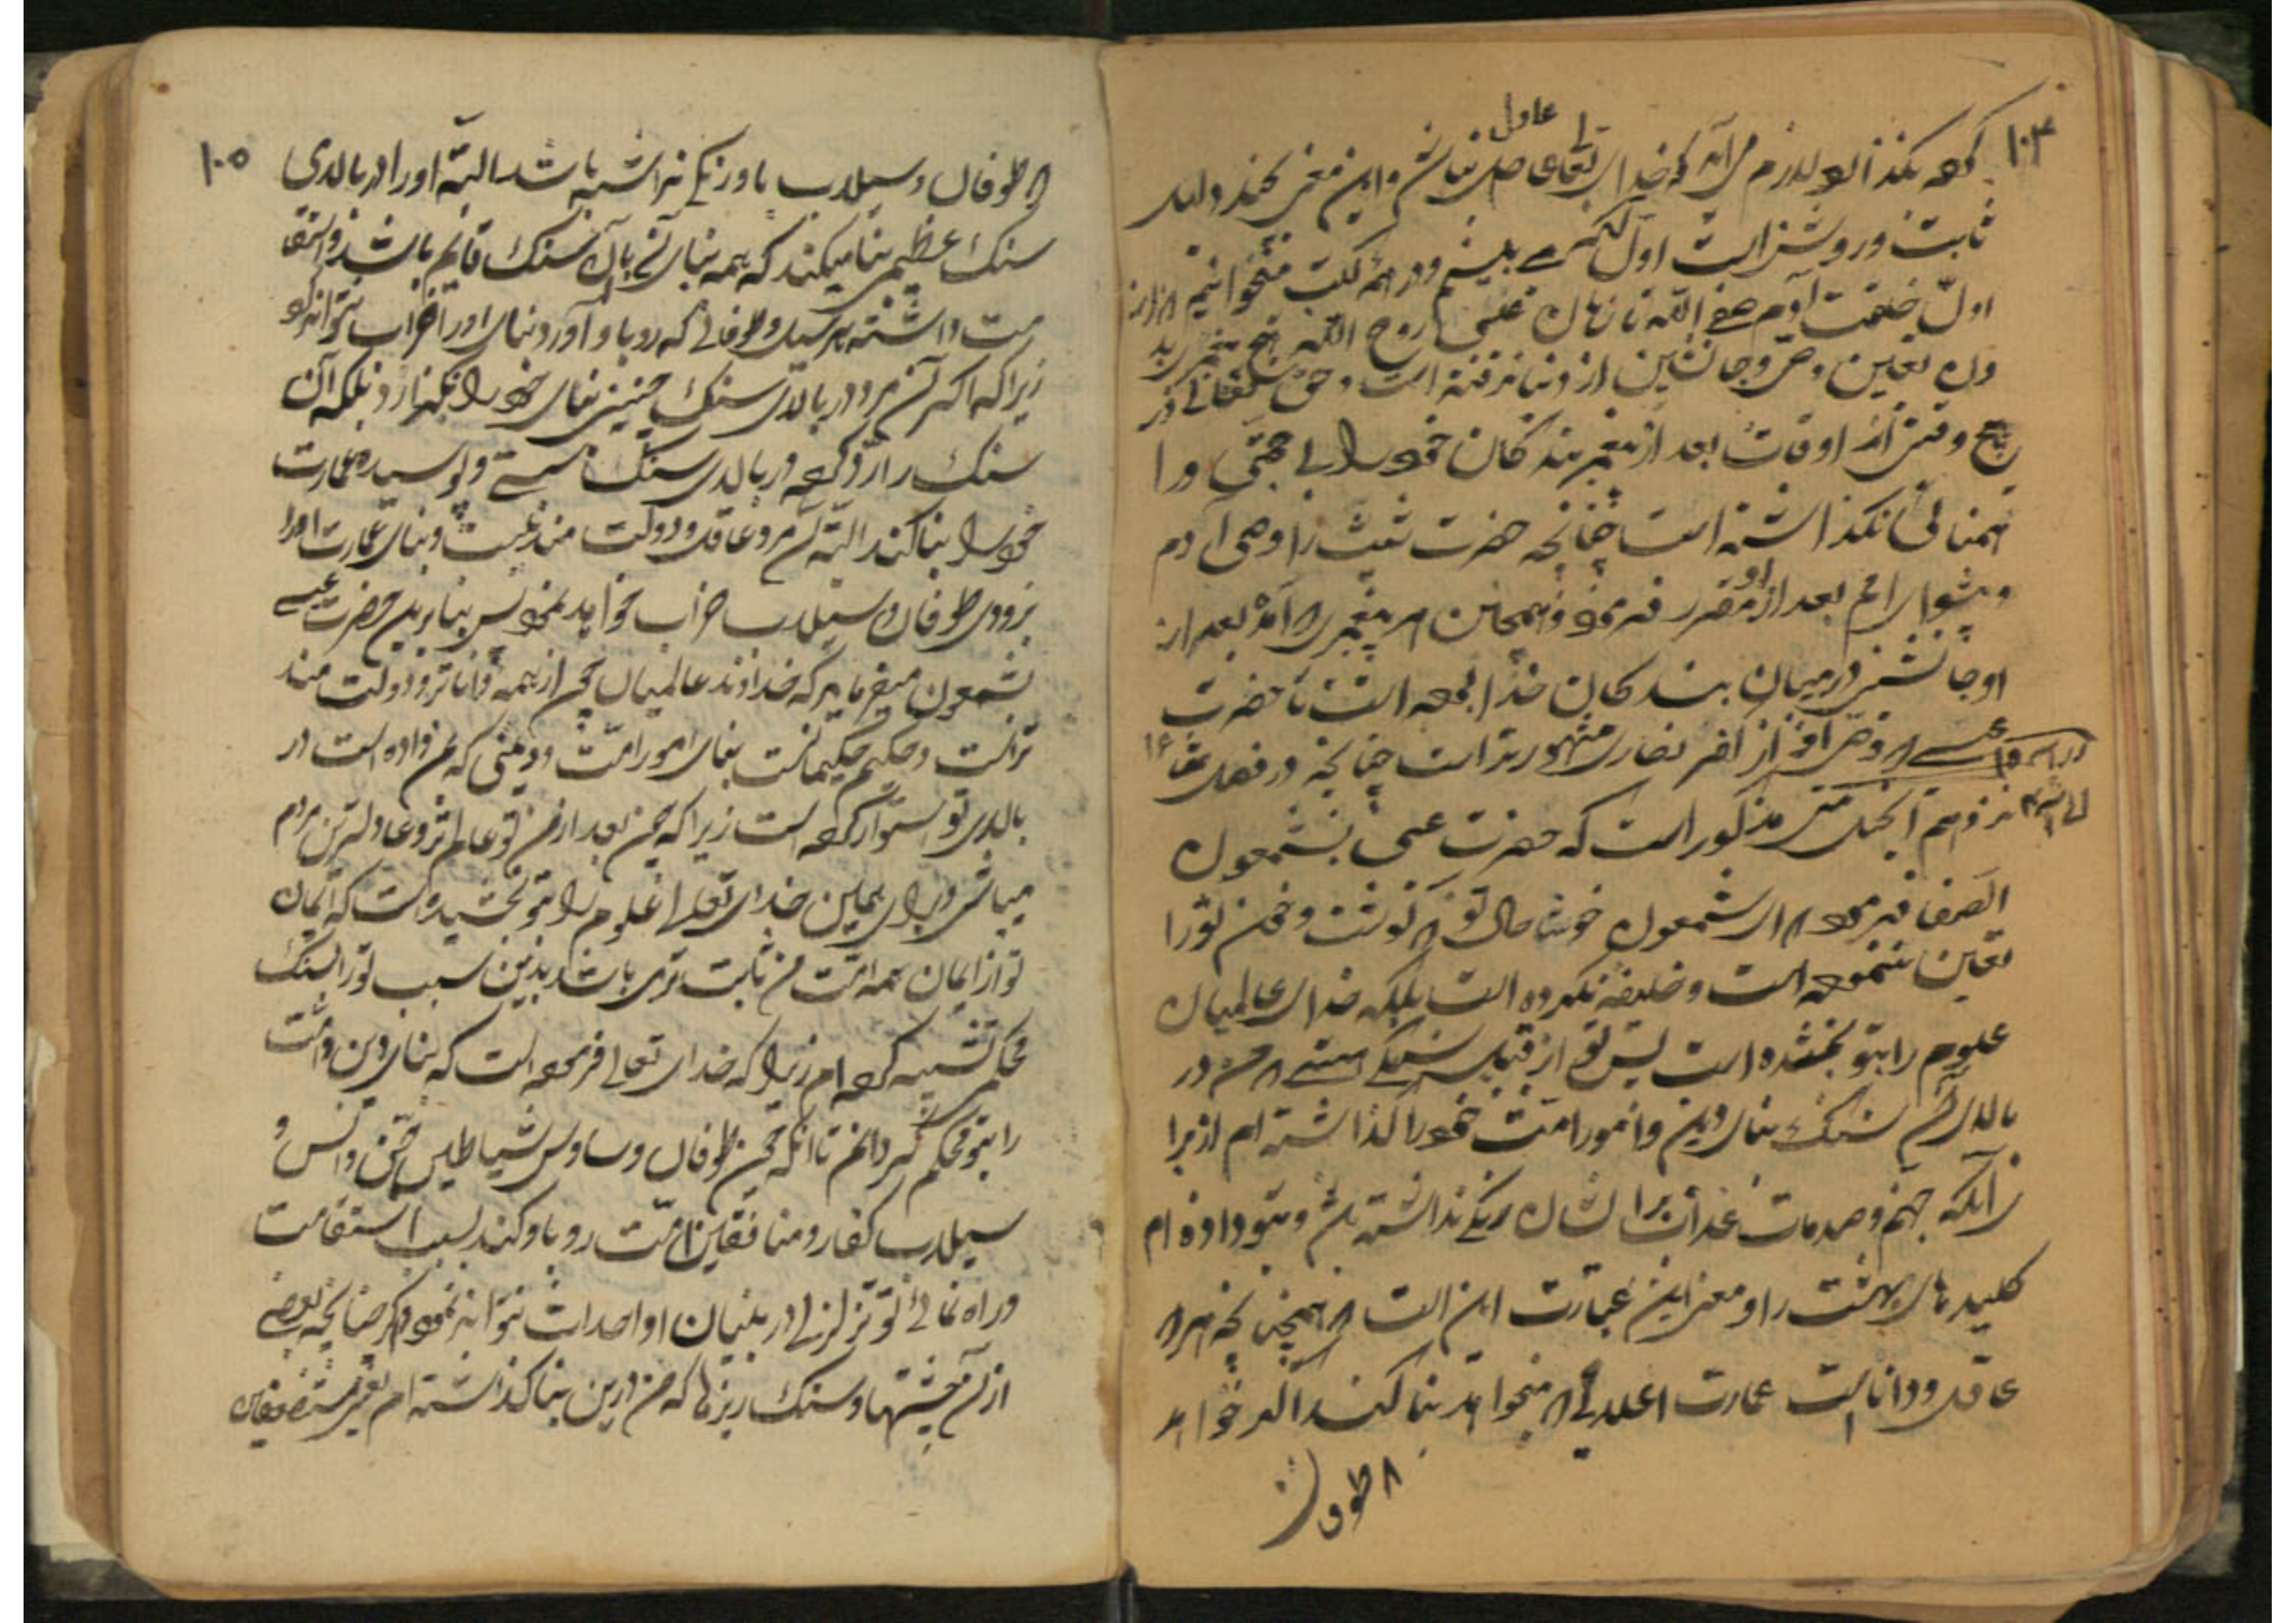 ۱۰۴
کرده بگذارد لازم می آید که خدای تعالی عادل نباشد و این معنی
ثابت و روشن است اول آنکه می بینیم و در همه کتب میخوانیم که از
اول خلقت آدم صفی الله تا زمان عیسی روح الله هیچ پیغمبری بد
ون تعیین وصی و جانشین از دنیا نرفته است و حق تعالی در
هیچ وقتی از اوقات بعد از پیغمبر بندگان خود را بی حجتی و را
هنمائی نگذاشته است چنانچه حضرت شیث را وصی آدم
و پیشوای امم بعد از او مقرر فرمود و همچنین هر پیغمبری که آمد بعد از
او جانشینی در میان بندگان خدا بوده است تا حضرت
عیسی که وصی او از نصاری مشهورتر است چنانچه در فصل ۱۶
انجیل متی مذکور است که حضرت عیسی بشمعون
الصفا فرمود که ای شمعون خوشا حال تو که گوشت و خون تو را
تعیین ننموده است و خلیفه نکرده است بلکه خدای عالمیان
علوم را بتو بخشیده است پس تو از قبیل سنگی هستی که من در
بالای آن سنگ بنای دین و امور امت خود را گذاشته ام از برا
ی آنکه جهنم و صدمات عذاب برایشان زنگی نداشته باشد و بتو داده ام
کلیدهای بهشت را و معنی این عبارت این است که همچنانچه هر که
عاقل و دانا است عمارت اعلائی که میخواهد بنا کند اگر خواهد
که طوفان
۱۰۵
که طوفان و سیلاب باو زنگی نداشته باشد البته او را در بالای
سنگ عظیمی بنا میکند که همه بنای آن بآن سنگ قایم باشد و استقا
مت داشته هر سیل و طوفانی که رو باو آورد بنای او را خراب نتواند کرد
زیرا که اگر آن مرد در بالای سنگ چنینی بنای خود را نگذارد بلکه آن
سنگ را رد کرده در بالای سنگ سستی و پوسیده عمارت
خود را بنا کند البته آن مرد عاقل و دولت مند نیست و بنای عمارت او را
بزودی طوفان و سیلاب خراب خواهد نمود پس بنابرین حضرت عیسی
بشمعون میفرماید که خداوند عالمیان چون از همه داناتر و دولت مند
تر است و حکیم حکیمانست بنای امور امت و دینی که بمن داده است در
بالای تو استوار کرده است زیرا که چون بعد از من تو عالم تر و عادلترین مردم
میباشی و برای همین خدای تعالی علوم را بتو بخشیده است که ایمان
تو از ایمان همه امت من ثابت تری باشد بدین سبب تو را بسنگ
محکمی تشبیه کرده ام زیرا که خدای تعالی فرموده است که بنای دین و امت
را بتو محکم گردانم تا آنکه چون طوفان وساوس شیاطین جن و انس و
سیلاب کفار و منافقین امت رو باو کند بسبب استقامت
و راه نمائی تو تزلزلی در بنیان او احداث نتواند نمود مگر چنانچه بعضی
از آن خشتها و سنگ ریزها که من در این بنا گذاشته ام یعنی مستضعفین